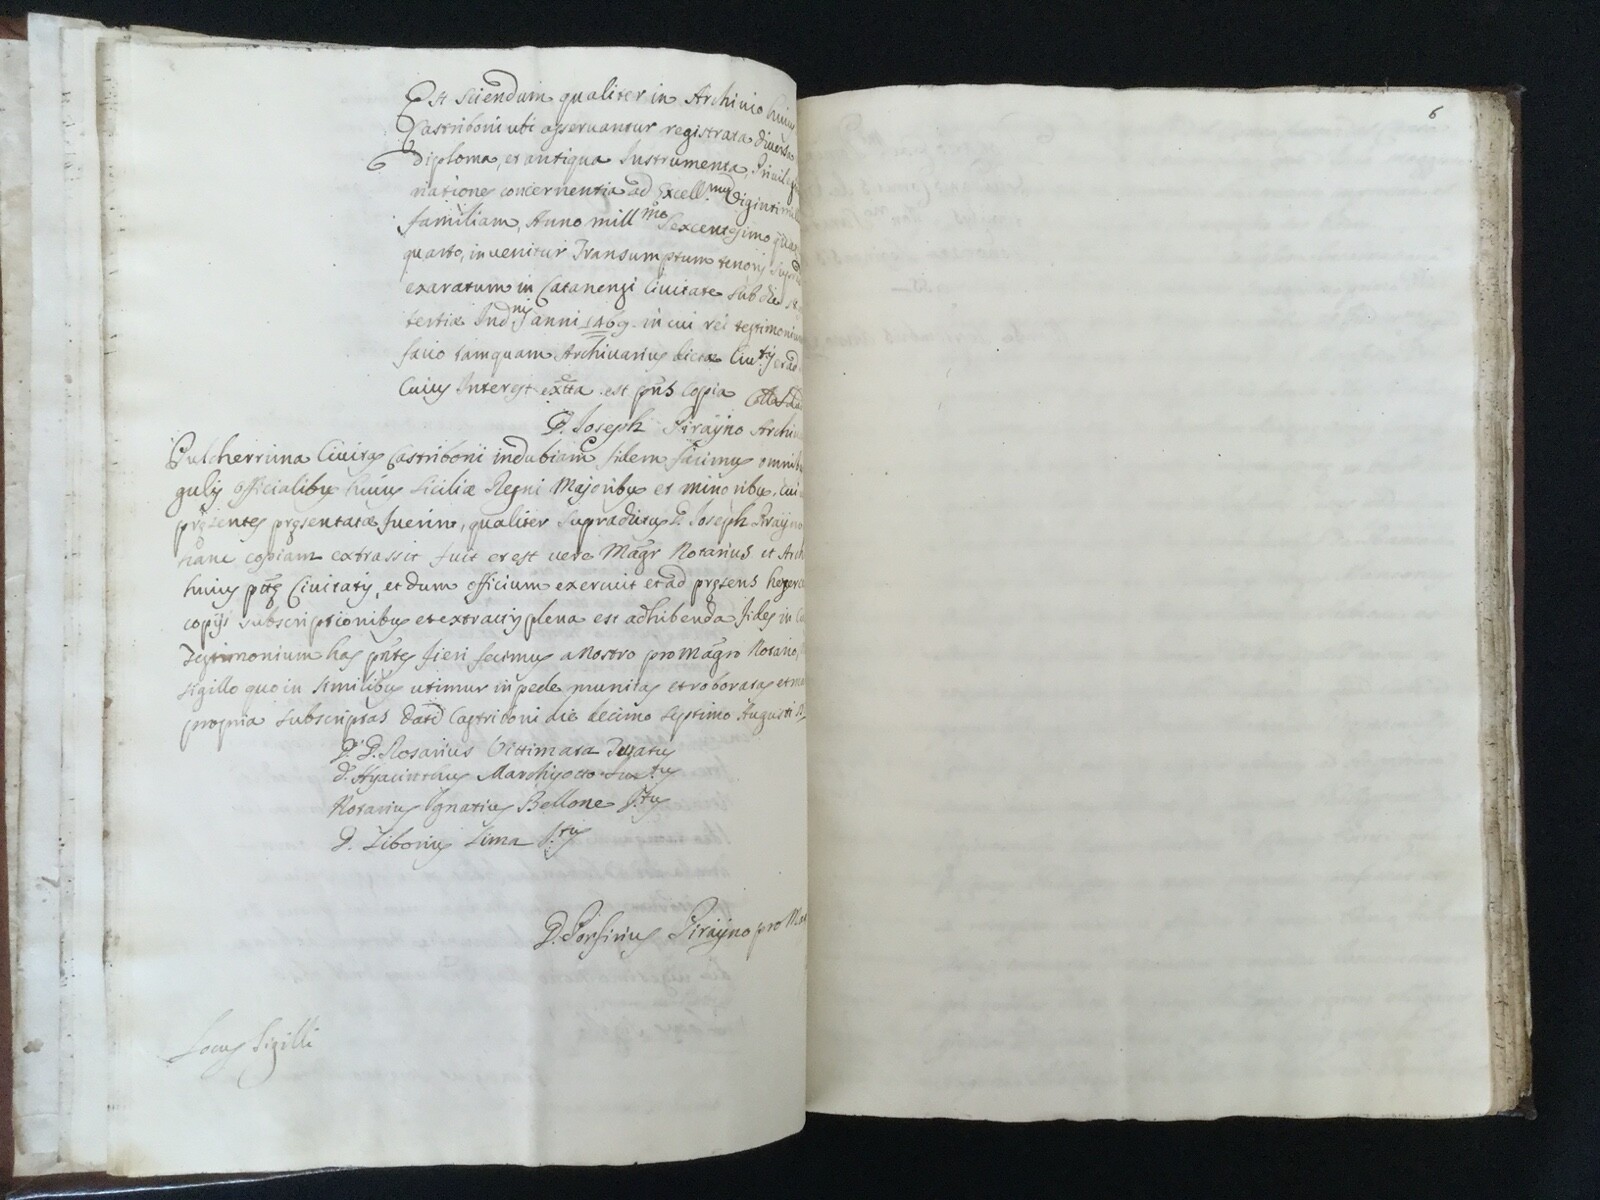 Est sciendum qualiter in Archivio huius
Castriboni ubi aservantur registrata diversa
Diploma, et antiqua Instrumenta,
nationes concernentia ad Excell.mam Viginti
familiam, Anno mill.mo Sexcentesimo
quarto, invenitur Transumptum tenoris
exaratum in Catanensi Civitate sub die
tertiæ Ind.nis anni 1469. in cui rei testimonium
facio tamquam Archivarius dictæ Civ.tis et ad
Cuius Interest extta est pns Copia Colla
D. Joseph Pirayno Archi
Pulcherrima Civitas Castriboni indubiam fidem facimus omni
gulis officialibus huius Siciliæ Regni Majoribus et minoribus, cui
presentes presentata fuerint, qualiter supradictus D. Joseph Pirayno
hanc copiam extrassit fuit et est vere Magr Notarius et Arch
huius pttæ Civitatis, et dum officium exercuit et ad presens
copijs subscriptionibus et extractis plena est adhibenda fides in
Testimonium has pntes fieri fecimus a Nostro pro magro Notario,
sigillo quo in similibus utimur in pede munitas et roboratas et
propria subscriptas Dat Castriboni die decimo septimo Augusti
D. D. Rosarius Vittimara Juratus
D. Hyacinthus Marchisotto Jur.tus
Notarius Ignatius Bellone J.tus
D. Libonius Lima J.tus
D. Porfirius Pirayno pro M
Locus Sigilli
6